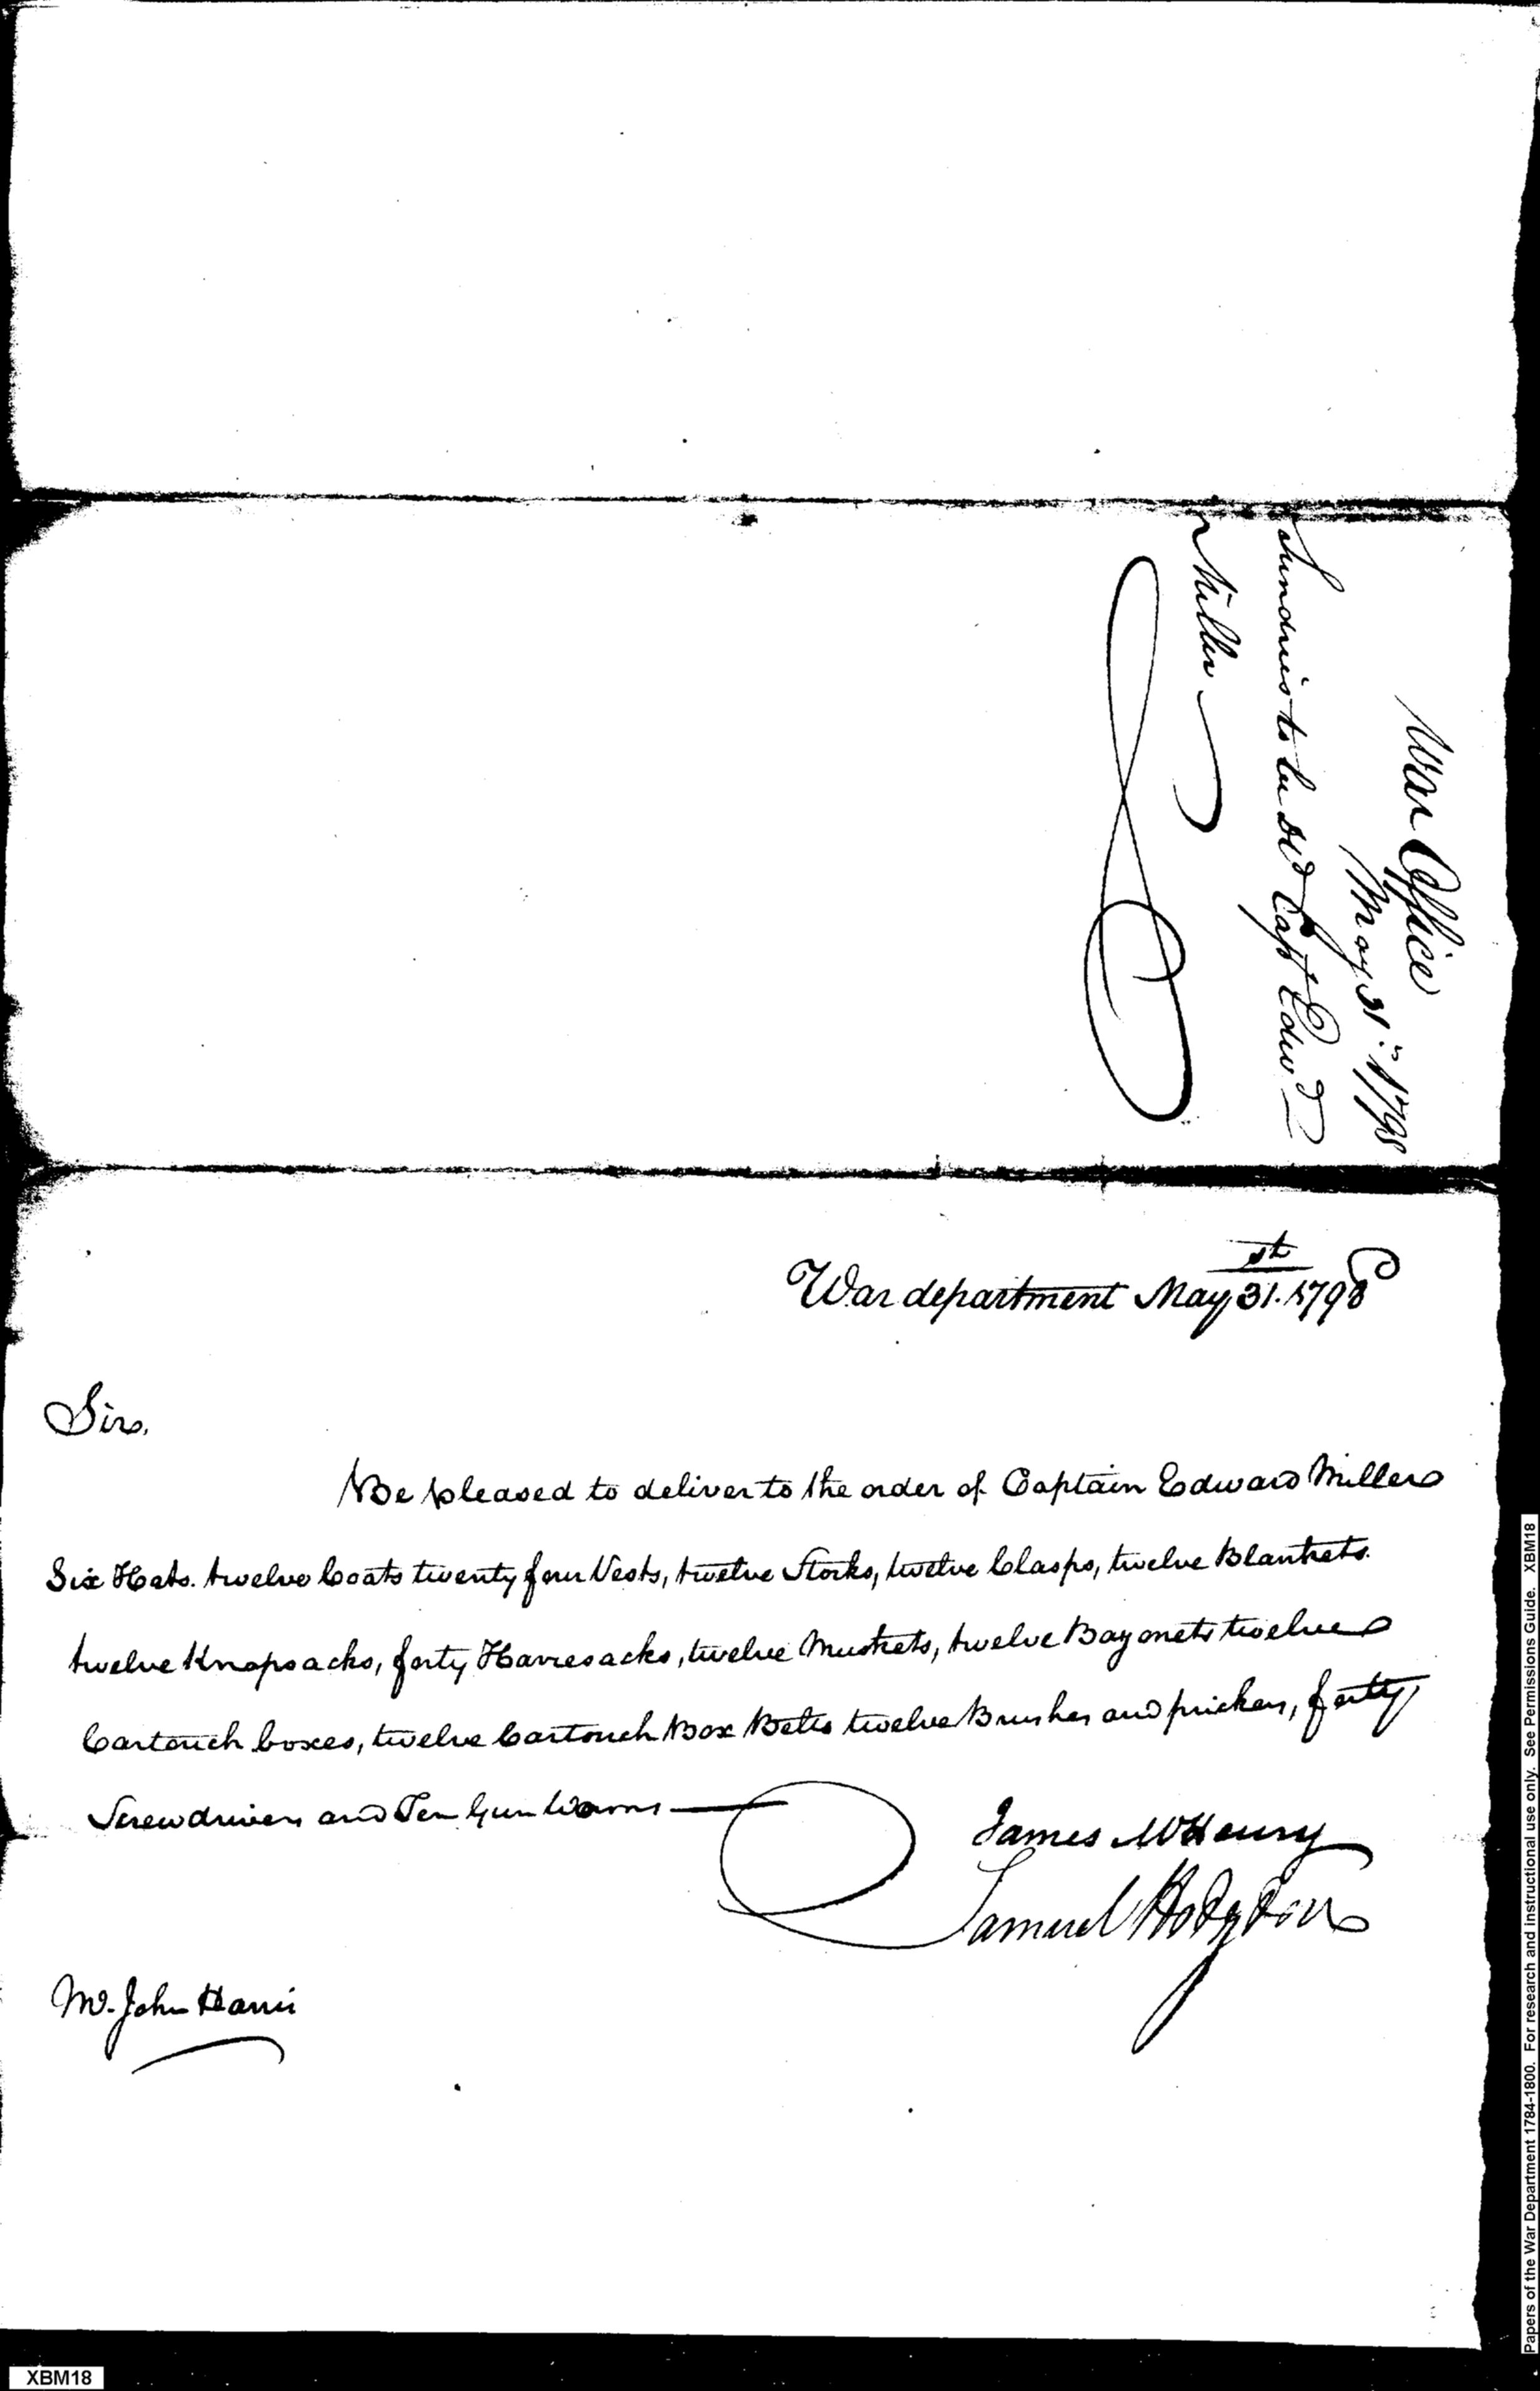 War Office
May 31st 1798
Sundries to be dd Capt Edwd
Miller
War department May 31st. 1798
Sir,
Be pleased to deliver to the order of Captain Edward Miller
Six Hats. twelve Coats twenty four Vests, twelve Stocks, twelve Clasps, twelve Blankets.
twelve Knapsacks, forty Haversacks, twelve Muskets, twelve Bayonets twelve
Cartouch boxes, twelve Cartouch Box Belts twelve Brushes and prickers, forty
Screwdrivers and Ten Gun Worms
James McHenry
Samuel Hodgdon
Mr. John Harris
XBM18
Papers of the War Department 1784-1800. For research and instructional use only. See Permissions Guide. XBM18